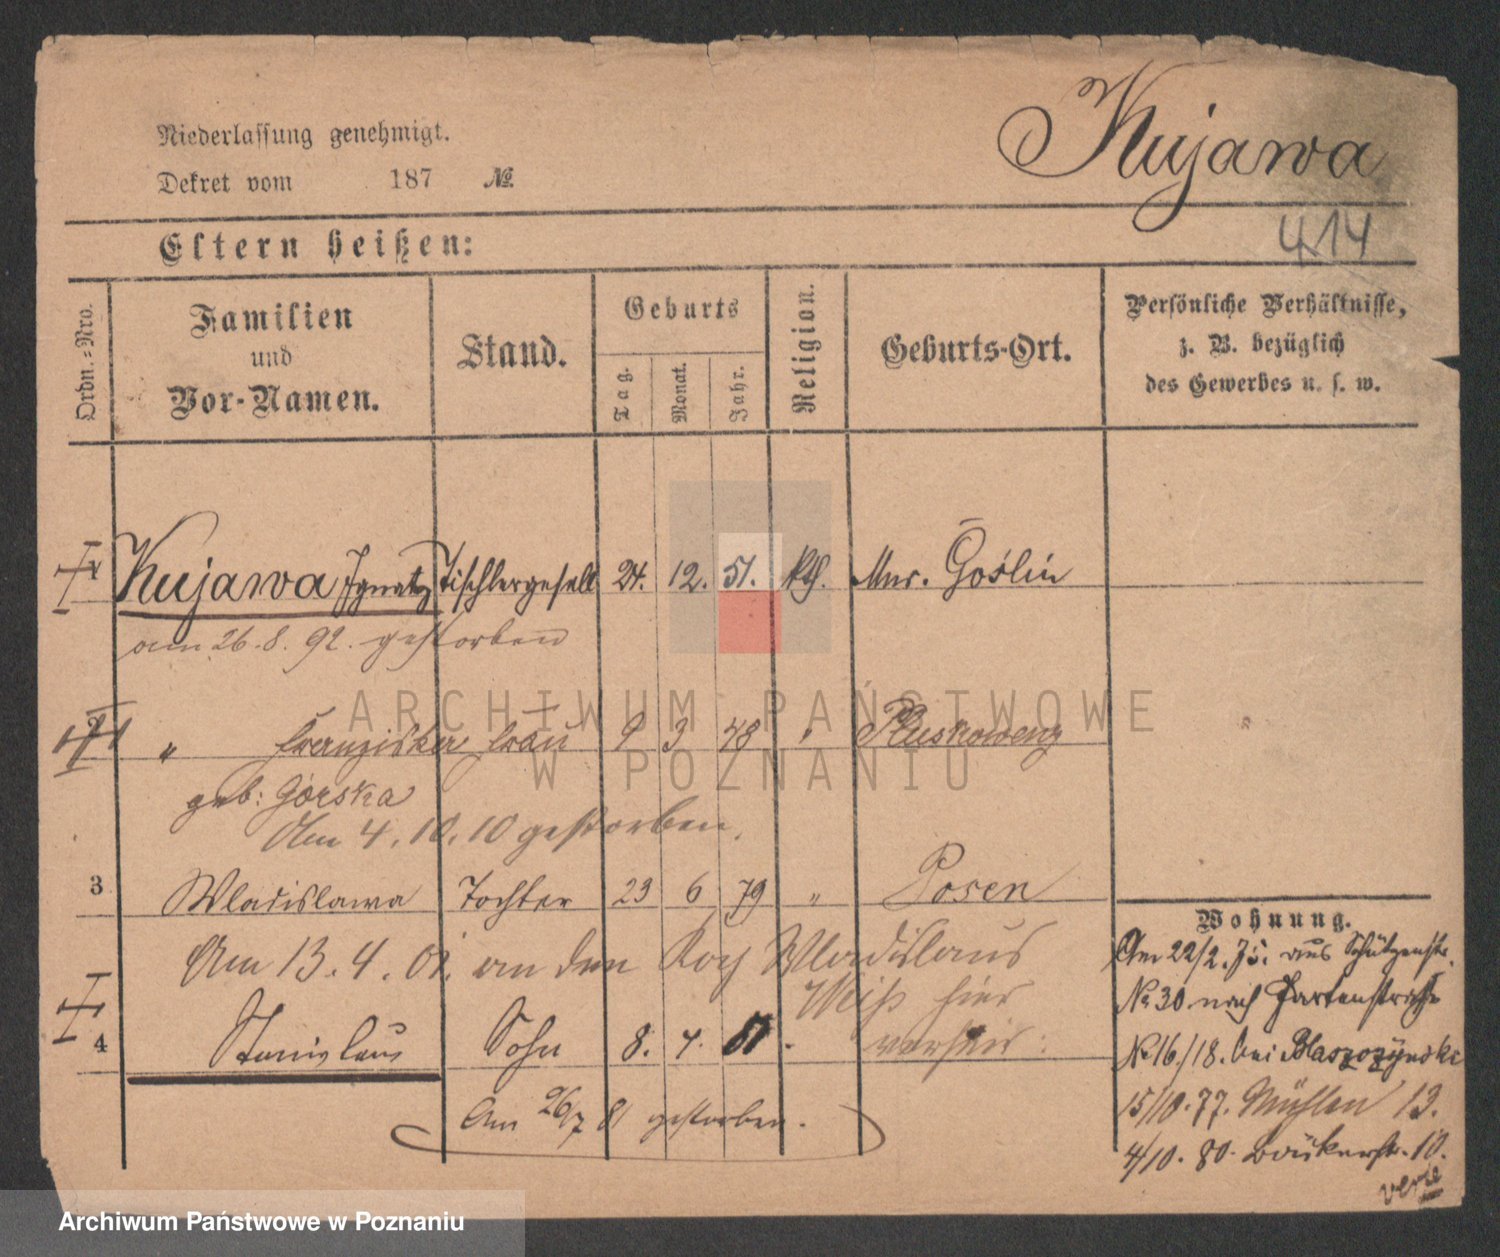 Kujawa
Niederlassung genehmigt.
Dekret vom 187 №
414
Eltern heißen:
Ordn.=Nro.
Familien und Vor-Namen.
Stand.
Geburts
Tag.
Monat.
Jahr.
Religion.
Geburts-Ort.
Persönliche Verhältnisse,
z. B. bezüglich
des Gewerbes u. s. w.
1 Kujawa Ignatz Tischlergesell 24. 12. 51. kth. Mur. Goślin
am 26.8.92. gestorben
2 " Franziska Frau 9 3 48 " Pluskowenz
geb: Górska
Am 4.10.10 gestorben.
3 Wladislawa Tochter 23 6 79 " Posen
Am 13.4.01. an den Wladislaus
Weiß hier
verheir.
4 Stanislaus Sohn 8. 4. 81.
Am 26/7 81 gestorben.
Wohnung.
Am 22/2. 75. aus Schützenstr.
No 30 nach Gartenstraße
No 16./18. bei Blaszczynski
15/10. 77. Mühlen 13.
4/10. 80. Bäckerstr. 10.
ARCHIWUM PAŃSTWOWE
W POZNANIU
Archiwum Państwowe w Poznaniu